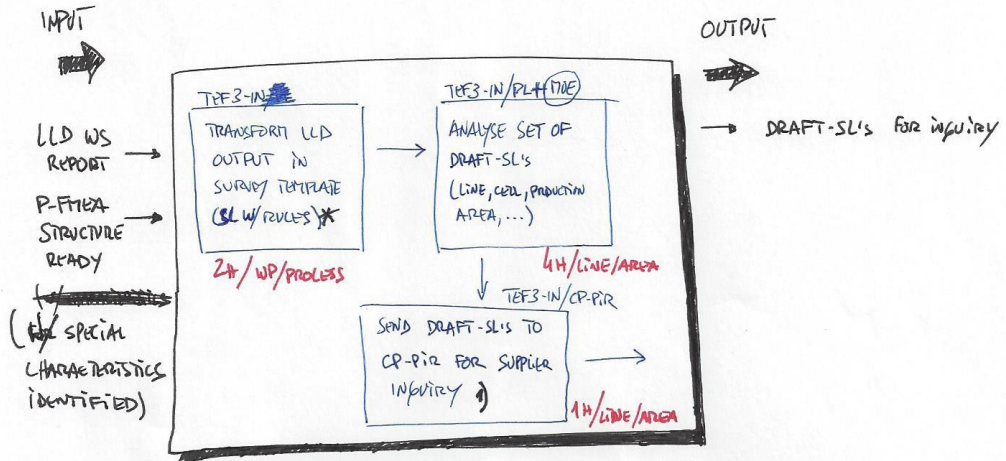 INPUT
OUTPUT
LLD WS
REPORT
P-FMEA
STRUCTURE
READY
SPECIAL
CHARACTERISTICS
IDENTIFIED)
TEF3-IN
TRANSFORM LLD
OUTPUT IN
SURVEY TEMPLATE
(SL W/RULES)*
2H/WP/PROCESS
TEF3-IN/PL+MOE
ANALYSE SET OF
DRAFT-SL'S
(LINE, CELL, PRODUCTION
AREA, ...)
4H/LINE/AREA
TEF3-IN/CP-PIR
SEND DRAFT-SL'S TO
CP-PIR FOR SUPPLIER
INQUIRY 1)
1H/LINE/AREA
DRAFT-SL'S FOR INQUIRY